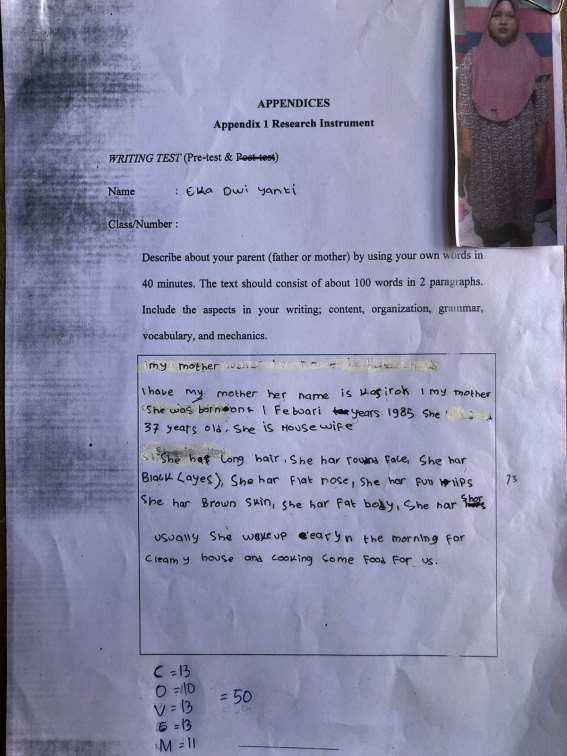 APPENDICES
Appendix 1 Research Instrument
WRITING TEST (Pre-test & Post-test)
Name : Eka Dwi Yanti
Class/Number :
Describe about your parent (father or mother) by using your own words in
40 minutes. The text should consist of about 100 words in 2 paragraphs.
Include the aspects in your writing; content, organization, grammar,
vocabulary, and mechanics.
my mother
I have my mother her name is I my mother
She was born 1 Febuari years 1985 She
37 years old. She is Housewife
She has Long hair, She har round Face, She har
Black (ayes), She har Flat nose, She har Full lips
She har Brown Skin, She har Fat body, She har Shor
75
usually She wakeup earyn the morning for
Clean y house and cooking Some Food For us.
C = 13
O = 10
V = 13
= 13
M = 11
= 50